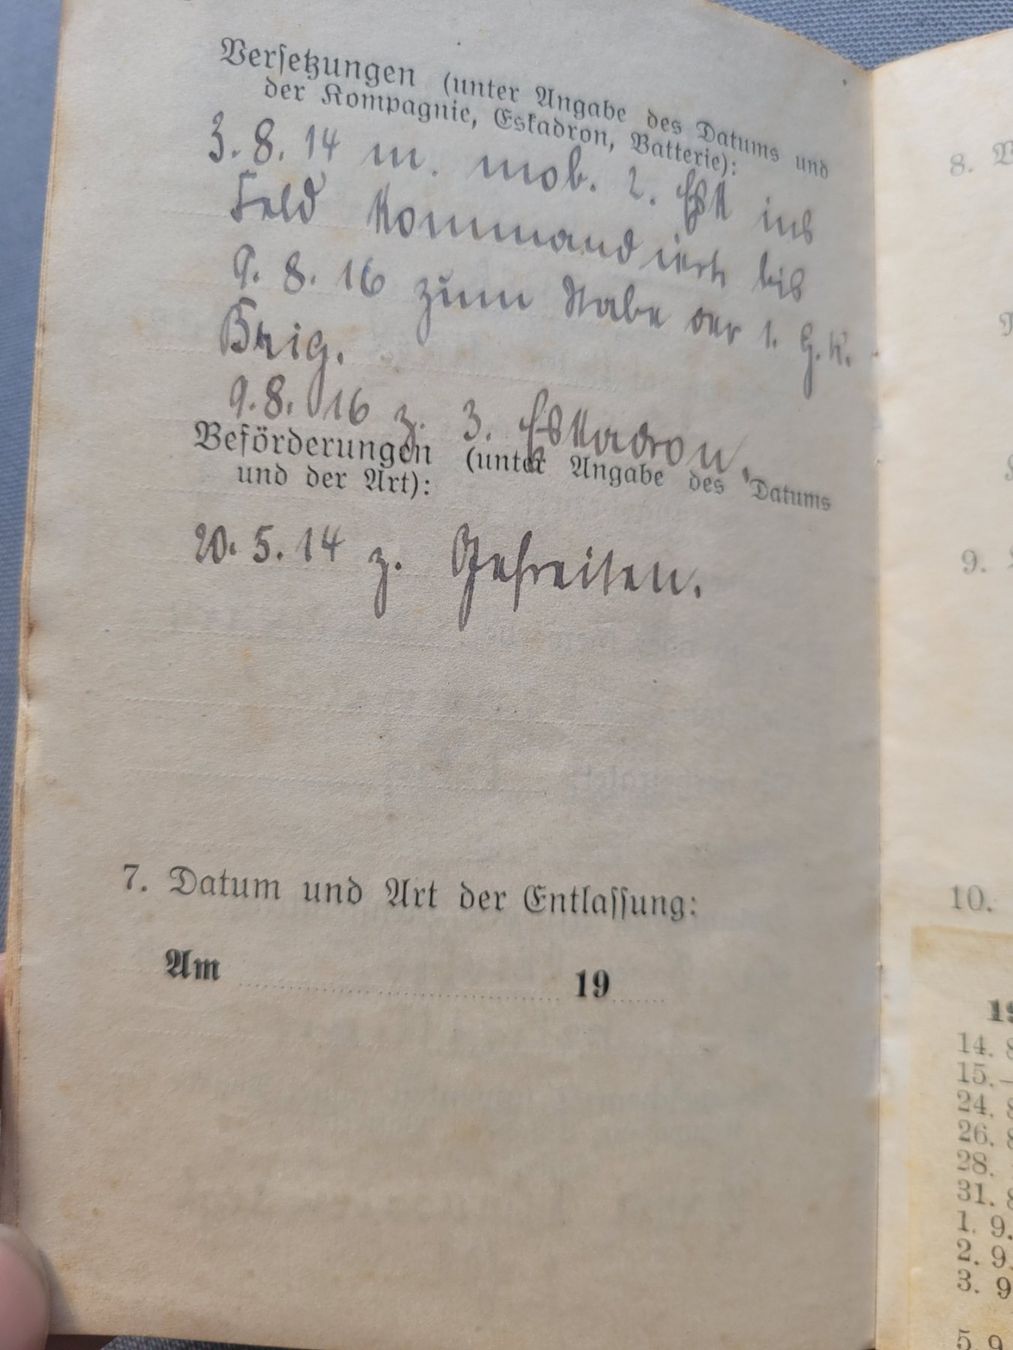 Versetzungen (unter Angabe des Datums und
der Kompagnie, Eskadron, Batterie):
3.8.14 m. mob. 2. Esk ins
Feld Kommandiert bis
9.8.16 zum Stabe der 1. G.K.
Brig.
9.8.16 z. 3. Eskadron.
Beförderungen (unter Angabe des Datums
und der Art):
20.5.14 z. Gefreiten.
7. Datum und Art der Entlassung:
Am 19
8.
9.
10.
14. 8
15. –
24. 8
26. 8
28.
31. 8
1. 9.
2. 9.
3. 9
5. 9